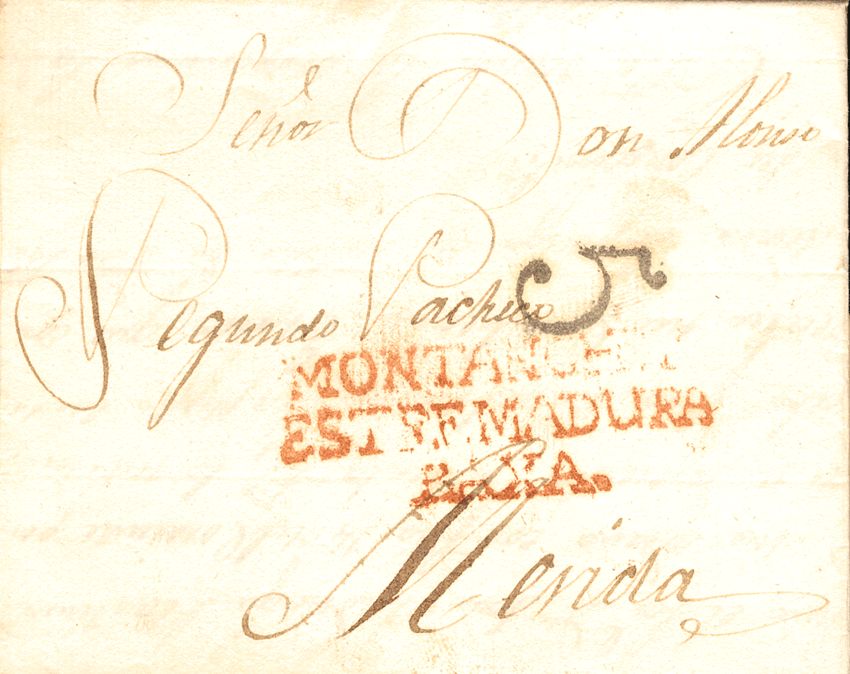 Señor Don Alonso
Segundo Pacheco
5
ESTREMADURA
BAXA.
Merida